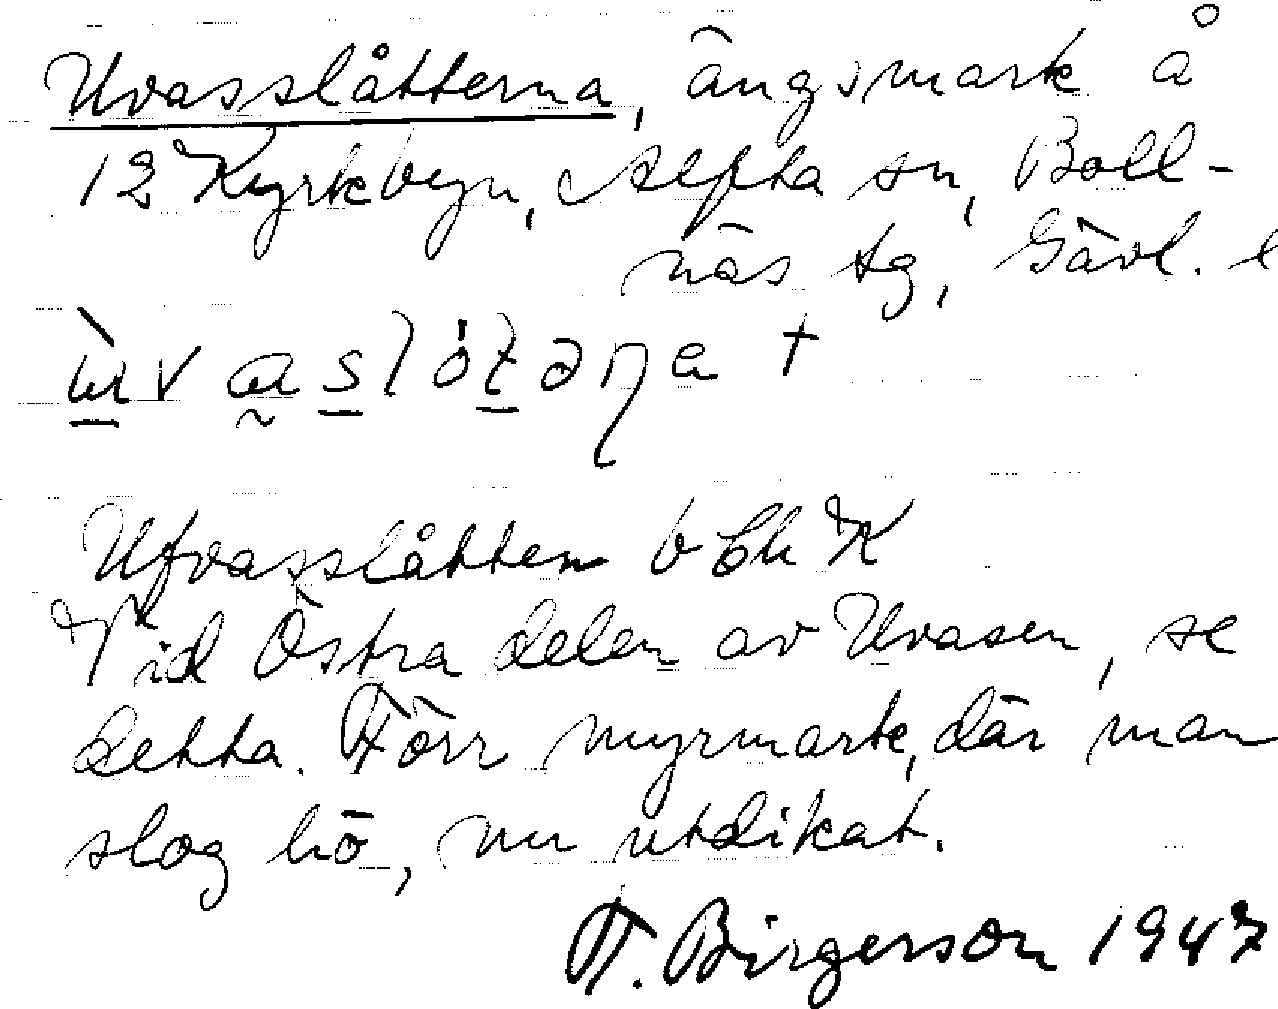 Uvasslåtterna, ängsmark å
12 Kyrkbyn, Alfta sn, Boll-
näs tg, Gävl. l
ɯ̀vaslótəɳa †
Ufvasslåtten b Ch K
Vid Östra delen av Uvasen, se
detta. Förr myrmark, där man
slog hö, nu utdikat.
T. Birgerson 1947